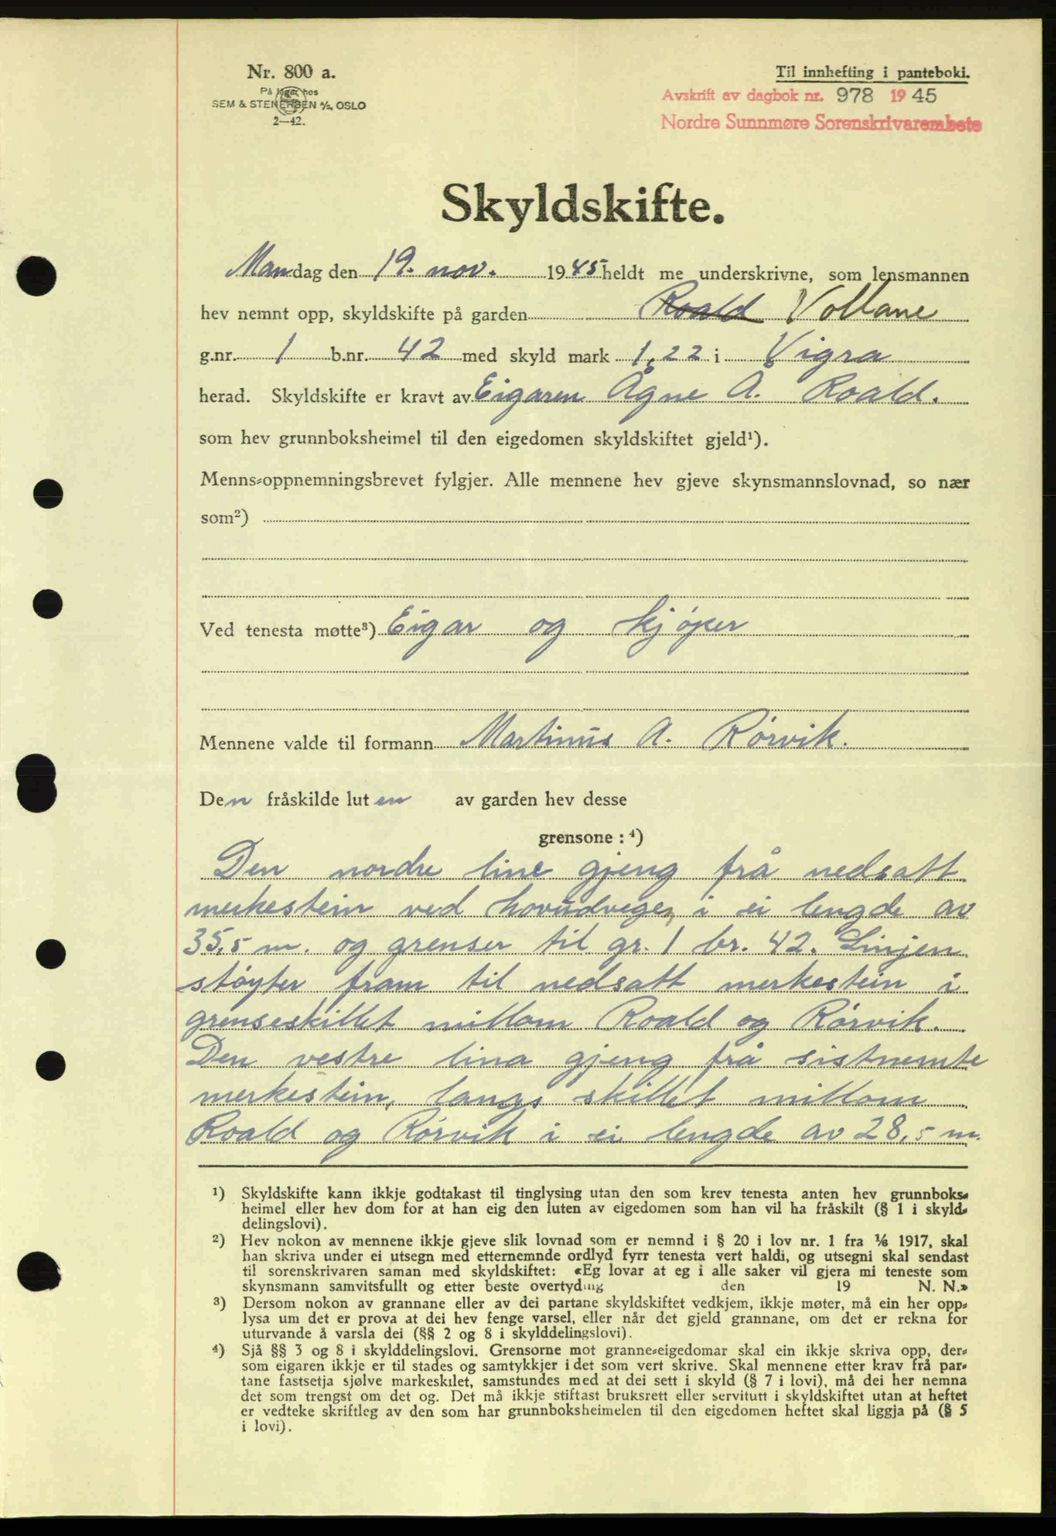 Nr. 800 a.
På lager hos
SEM & STENERSEN A/S, OSLO
2—42.
Til innhefting i panteboki.
Avskrift av dagbok nr. 978 1945
Nordre Sunnmøre Sorenskrivarembete
Skyldskifte.
Mandag den 19. nov. 1945 heldt me underskrivne, som lensmannen
hev nemnt opp, skyldskifte på garden Roald Vollane
g.nr. 1 b.nr. 42 med skyld mark 1,22 i Vigra
herad. Skyldskifte er kravt av Eigaren Agne A. Roald.
som hev grunnboksheimel til den eigedomen skyldskiftet gjeld¹).
Menns-oppnemningsbrevet fylgjer. Alle mennene hev gjeve skynsmannslovnad, so nær
som²)
Ved tenesta møtte³) Eigar og kjøper
Mennene valde til formann Martinus A. Rørvik.
Den fråskilde luten av garden hev desse
grensone : ⁴)
Den nordre line gjeng frå nedsatt
merkestein ved hovudvegen, i ei lengde av
35,5 m. og grenser til gr. 1 br. 42. Linjen
støyter fram til nedsatt merkestein i
grenseskillet millom Roald og Rørvik.
Den vestre lina gjeng frå sistnemte
merkestein, langs skillet millom
Roald og Rørvik i ei lengde av 28,5 m.
¹) Skyldskifte kann ikkje godtakast til tinglysing utan den som krev tenesta anten hev grunnboks-
heimel eller hev dom for at han eig den luten av eigedomen som han vil ha fråskilt (§ 1 i skyld-
delingslovi).
²) Hev nokon av mennene ikkje gjeve slik lovnad som er nemnd i § 20 i lov nr. 1 fra 1/6 1917, skal
han skriva under ei utsegn med etternemnde ordlyd fyrr tenesta vert haldi, og utsegni skal sendast
til sorenskrivaren saman med skyldskiftet: «Eg lovar at eg i alle saker vil gjera mi teneste som
skynsmann samvitsfullt og etter beste overtyding den 19 N. N.»
³) Dersom nokon av grannane eller av dei partane skyldskiftet vedkjem, ikkje møter, må ein her opp-
lysa um det er prova at dei hev fenge varsel, eller når det gjeld grannane, om det er rekna for
uturvande å varsla dei (§§ 2 og 8 i skylddelingslovi).
⁴) Sjå §§ 3 og 8 i skylddelingslovi. Grensorne mot granne-eigedomar skal ein ikkje skriva opp, der-
som eigaren ikkje er til stades og samtykkjer i det som vert skrive. Skal mennene etter krav frå par-
tane fastsetja sjølve markeskilet, samstundes med at dei sett i skyld (§ 7 i lovi), må dei her nemna
det som trengst om det og. Det må ikkje stiftast bruksrett eller servitutt i skyldskiftet utan at heftet
er vedteke skriftleg av den som har grunnboksheimelen til den eigedomen heftet skal liggja på (§ 5
i lovi).